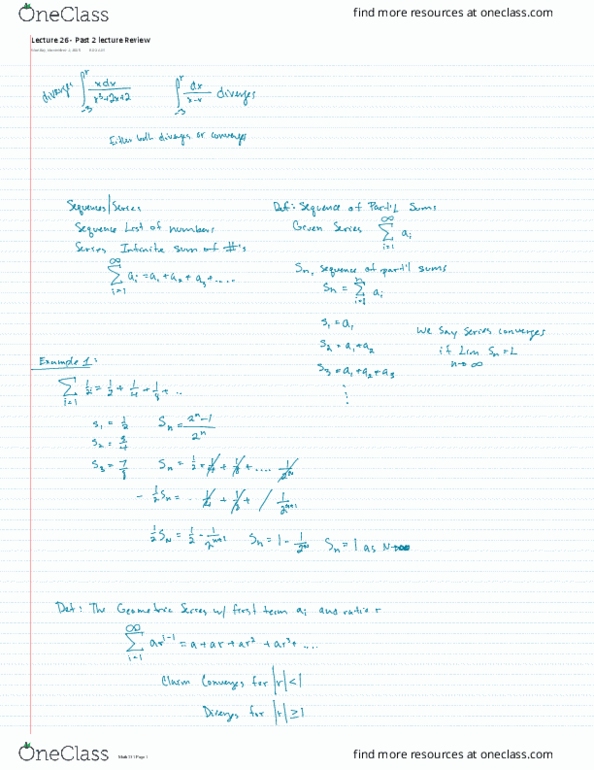 OneClass
find more resources at oneclass.com
Lecture 26 - Past 2 lecture Review
diverges ∫ xdx / x³+2x+2 ∫ dx / diverges
-3 -3
Either both diverges or converges
Sequences/Series
Sequence List of numbers
Series Infinite sum of #'s
∞
∑ ai = a1 + a2 + a3 + ....
i=1
Def: Sequence of Part'l Sums
Given Series ∞ ∑ ai i=1
Sn, sequence of part'l sums
Sn = ∑ ai
i=1
s1 = a1
s2 = a1 + a2
s3 = a1 + a2 + a3
⋮
We Say Series converges
if Lim Sn = L
n→∞
Example 1:
∑ = 1/2 + 1/4 + 1/8 + ..
i=1
s1 = 1/2 Sn = 2ⁿ-1 / 2ⁿ
s2 = 3/4
s3 = 7/8 Sn = 1/2 + 1/4 + 1/8 + .... 1/2ⁿ
- 1/2 Sn = 1/4 + 1/8 + / 1/2ⁿ⁺¹
1/2 SN = 1/2 - 1/2ⁿ⁺¹ Sn = 1 - 1/2ⁿ Sn = 1 as N→∞
Def: The Geometric Series w/ first term a, and ratio r
∞
∑ arⁱ⁻¹ = a + ar + ar² + ar³ + ...
i=1
Claim Converges for |r| < 1
Diverges for |r| ≥ 1
OneClass
find more resources at oneclass.com